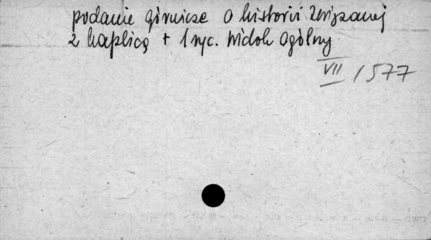 podanie górnicze o historii związanej
z kaplicą + 1 ryc. Widok ogólny
VII 1577